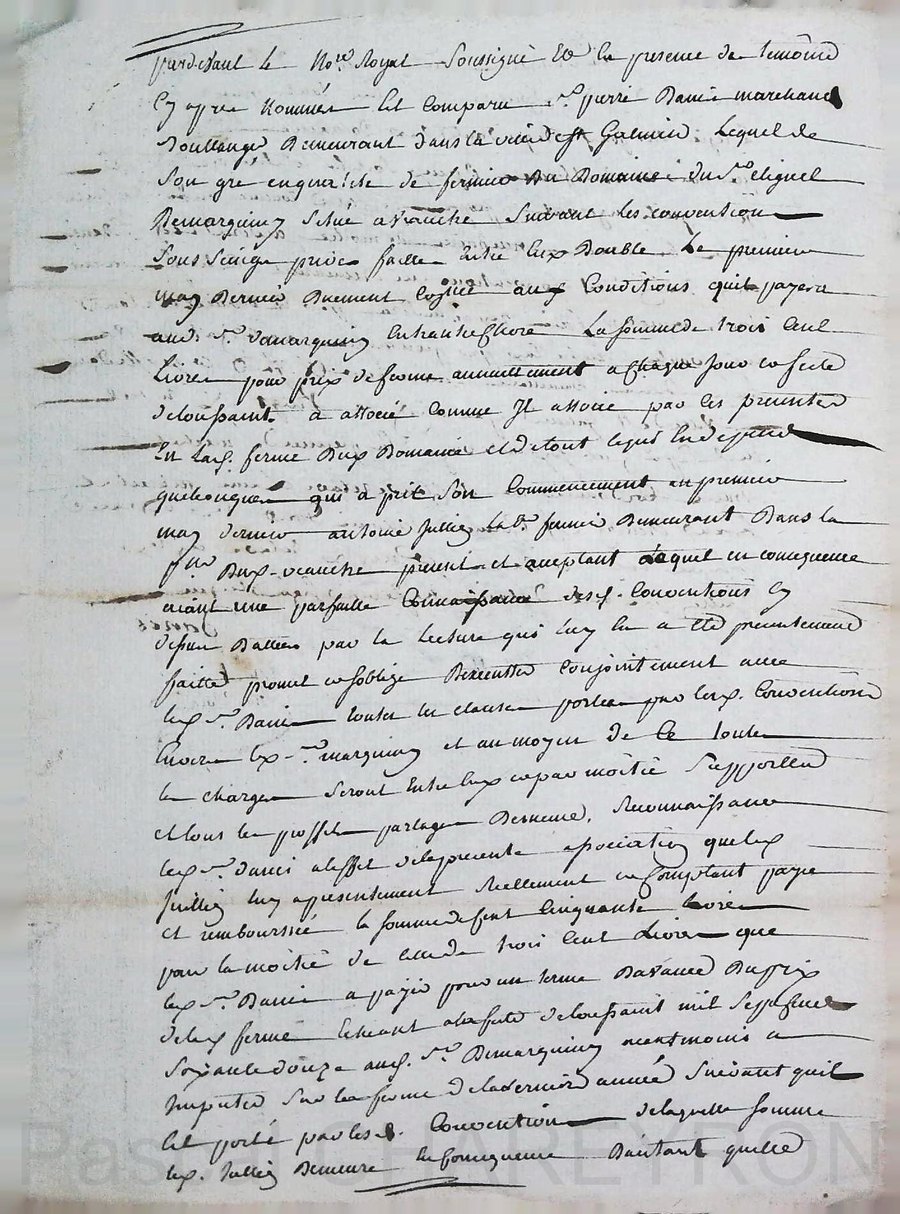 pardevant le No.re Royal soussigné et en presence de temoins
Cy apres Nommés est Comparu s.r pierre Danie marchand
Boullanger Demeurant dans la ville de st Galmier Lequel de
son gré en quallite de fermier du Domaine du s.r
Demarquing Scitué a veauche suivant les convention
sous seing privé faitte entre eux Double Le premier
may Dernier aux Conditions quil payera
aud. s.r demarquing La somme de trois Cent
Livres pour prix de ferme annuellement a chaque jour et feste
de toussaint. a associé comme Il associe par ces presentes
En lad. ferme Dud Domaine et de tout ce qui En depend
quelconques qui a prit son Commencement au premier
may dernier antoine Jullien La.r fermier Demeurant Dans la
p.sse Dud. veauche present et aceptant Lequel en consequence
aiant une parfaitte Connaissance desd. Conventions Cy
dessus Dattées par la Lecture qui luy en a été presentement
faitte promet et soblige Dexecuter Conjointement avec
led. s.r Danie toutes les clauses portées par lesd. Conventions
Envers led. s.r marquing et au moyen de Ce toutes
les charges seront Entre eux et par moitié Supportées
et tous les proffits partages De meme, Reconnaissance
led. s.r danie a leffet de la presente association que led.
Jullien luy a presentement Reellement et Comptant payé
et remboursée la somme de Cent Cinquante Livres
pour la moitié de celle de trois Cent Livres que
led. s.r Danie a payé pour un terme Davance Du prix
de lad. ferme Echeant a la feste de toussaint mil sept cent
soixante douze aud. s.r Demarquing neantmoins a
Imputer sur la ferme de la derniere année suivant quil
Est porté par lesd. Convention de laquelle somme
led. Jullien Demeure En Consequence Dautant quitte
Pascal CHAREYRON